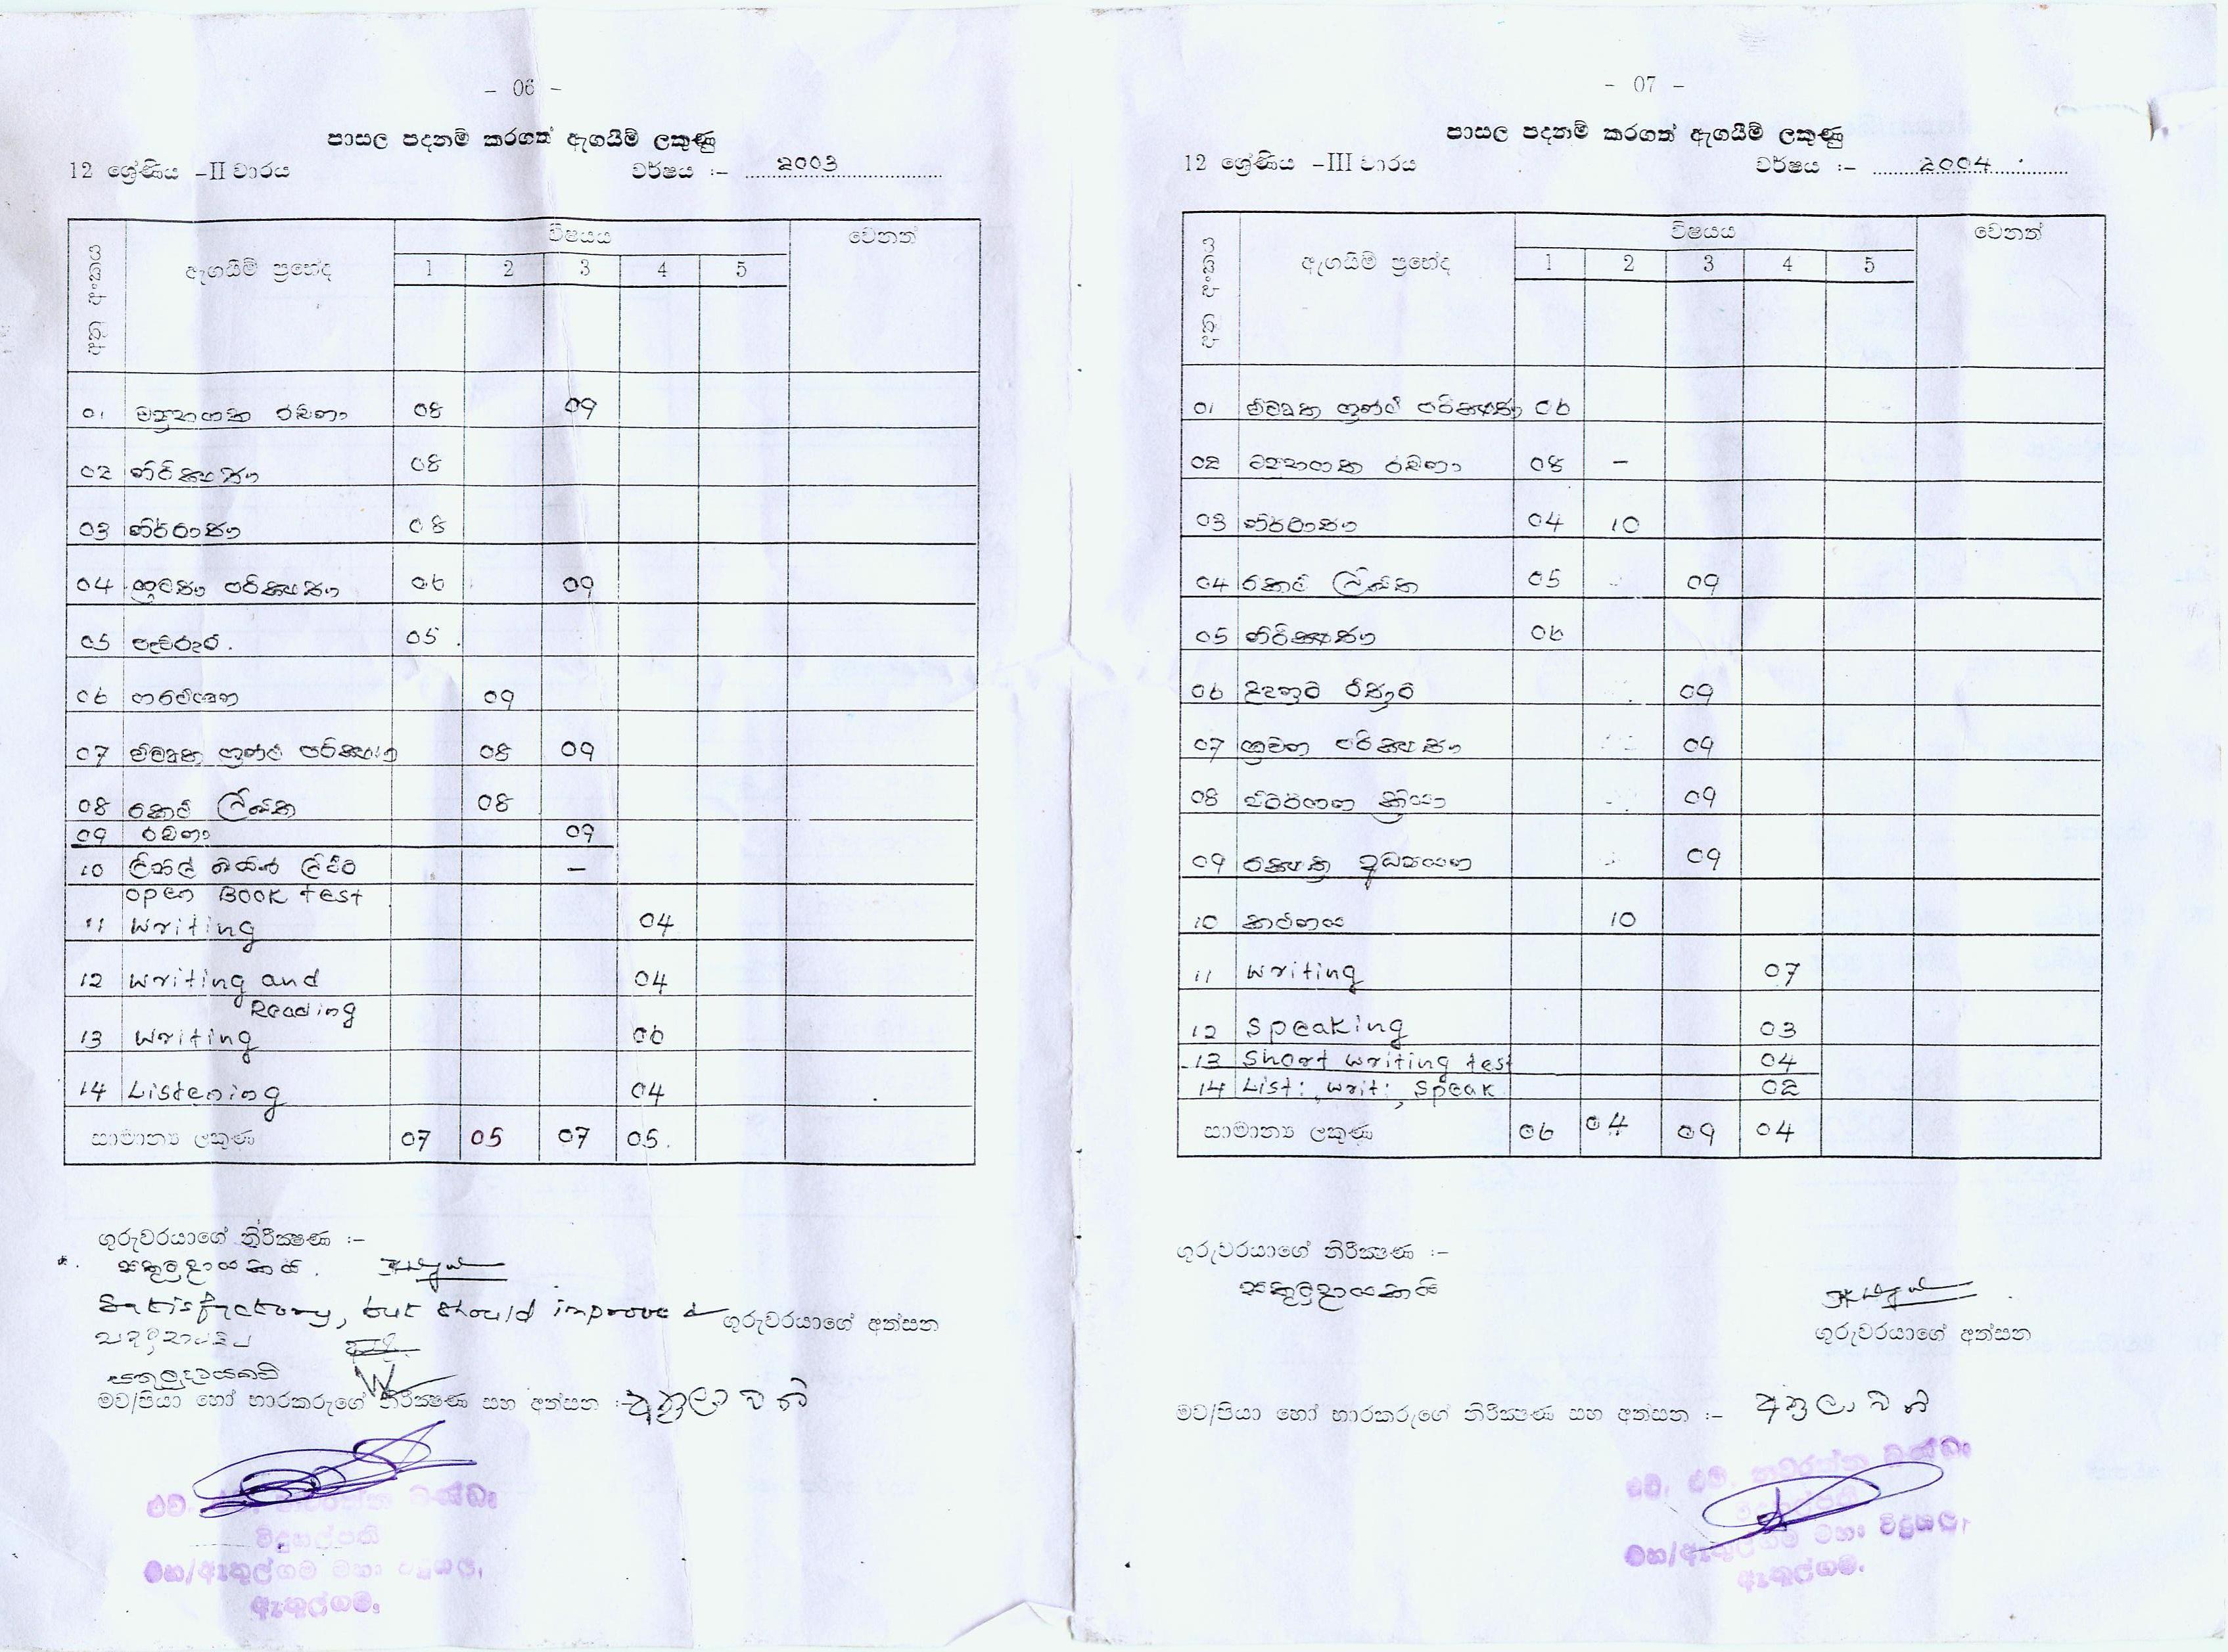 - 06 -
පාසල පදනම් කරගත් ඇගයීම් ලකුණු
12 ශ්‍රේණිය -II වාරය වර්ෂය :- 2003
අනු අංකය ඇගයීම් ප්‍රභේද විෂයය වෙනත්
1 2 3 4 5
01 ව්‍යුහගත රචනා 08 09
02 නිරීක්ෂණ 08
03 නිර්මාණ 08
04 ශ්‍රවණ පරීක්ෂණ 06 09
05 පැවරුම් 05
06 ගවේශන 09
07 විවෘත ග්‍රන්ථ පරීක්ෂණ 08 09
08 කෙටි ලිඛිත 08
09 රචනා 09
10 –
open Book test
11 Writing 04
12 Writing and 04
Reading
13 Writing 06
14 Listening 04
සාමාන්‍ය ලකුණ 07 05 07 05
ගුරුවරයාගේ නිරීක්ෂණ :-
සතුටුදායකයි.
Satisfactory, but should improve
ගුරුවරයාගේ අත්සන
සතුටුදායකයි
මව/පියා හෝ භාරකරුගේ නිරීක්ෂණ සහ අත්සන :- අනුලාවතී
විදුහල්පති
- 07 -
පාසල පදනම් කරගත් ඇගයීම් ලකුණු
12 ශ්‍රේණිය -III වාරය වර්ෂය :- 2004
අනු අංකය ඇගයීම් ප්‍රභේද විෂයය වෙනත්
1 2 3 4 5
01 විවෘත ග්‍රන්ථ පරීක්ෂණ 06
02 ව්‍යුහගත රචනා 08 –
03 නිර්මාණ 04 10
04 කෙටි ලිඛිත 05 09
05 නිරීක්ෂණ 06
06 09
07 ශ්‍රවන පරීක්ෂණ 09
08 ක්‍රියා 09
09 ක්ෂේත්‍ර අධ්‍යයන 09
10 කථනය 10
11 Writing 07
12 Speaking 03
13 Short writing test 04
14 List:, Writ:, Speak 02
සාමාන්‍ය ලකුණ 06 04 09 04
ගුරුවරයාගේ නිරීක්ෂණ :-
සතුටුදායකයි
ගුරුවරයාගේ අත්සන
මව/පියා හෝ භාරකරුගේ නිරීක්ෂණ සහ අත්සන :- අනුලාවතී